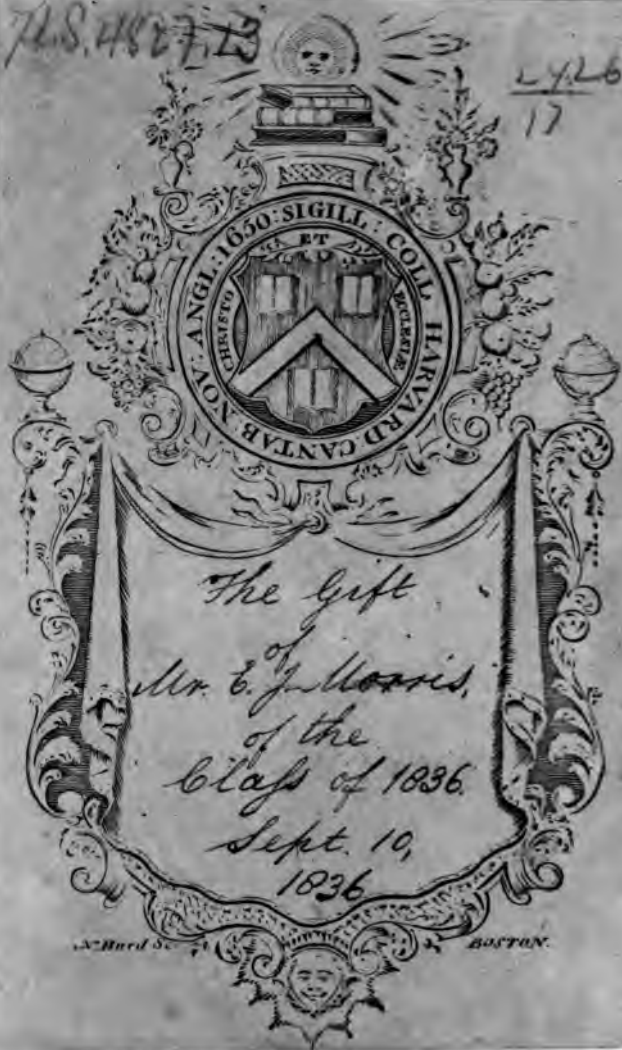 24.26
17
SIGILL: COLL HARVARD: CANTAB: NOV: ANGL: 1650:
ET
CHRISTO
ECCLESIÆ
The Gift
of
Mr. E. J. Morris,
of the
Claſs of 1836.
Sept. 10,
1836
N. Hurd
BOSTON.